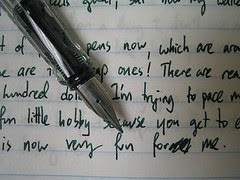 goal, but now my
t of pens now, which are aroun
e are cheap ones! There are real
hundred dol I'm trying to pace m
fun little hobby because you get to e
is now very fun for me.